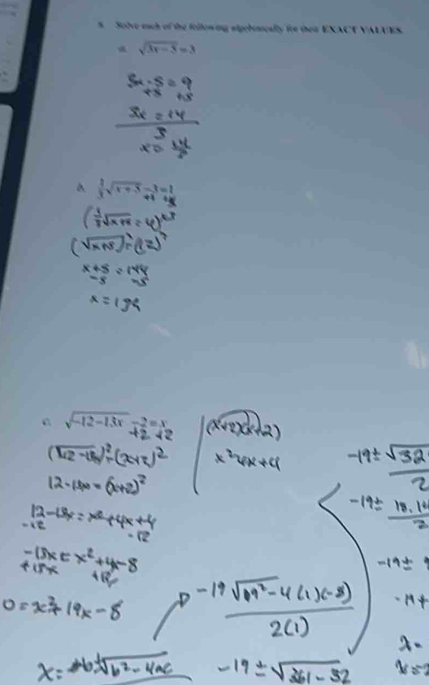 8. Solve each of the following algebraically for their EXACT VALUES.
a. √(3x - 5) = 3
3x - 5 = 9
+5 +5
3x = 14
3
x = 14/3
b. 1/3 √(x + 5) - 3 = 1
+3 +3
(1/3 √(x+5) = 4)×3
(√(x+5))² = (12)²
x + 5 = 144
-5 -5
x = 139
c. √(-12 - 13x) - 2 = x
+2 +2
(x+2)(x+2)
x² 4x + 4
(√(12 - 13x))² = (x+2)²
12 - 13x = (x+2)²
12 - 13x = x² + 4x + 4
-12 -12
-13x = x² + 4x - 8
+13x +13x
0 = x² + 19x - 8
x = -b ± √(b² - 4ac)
-19 √(19² - 4(1)(-8))
2(1)
-19 ± √(361 - 32)
-19 ± √32
2
-19 ± 18.1
2
-19 ±
-19 +
x =
x =